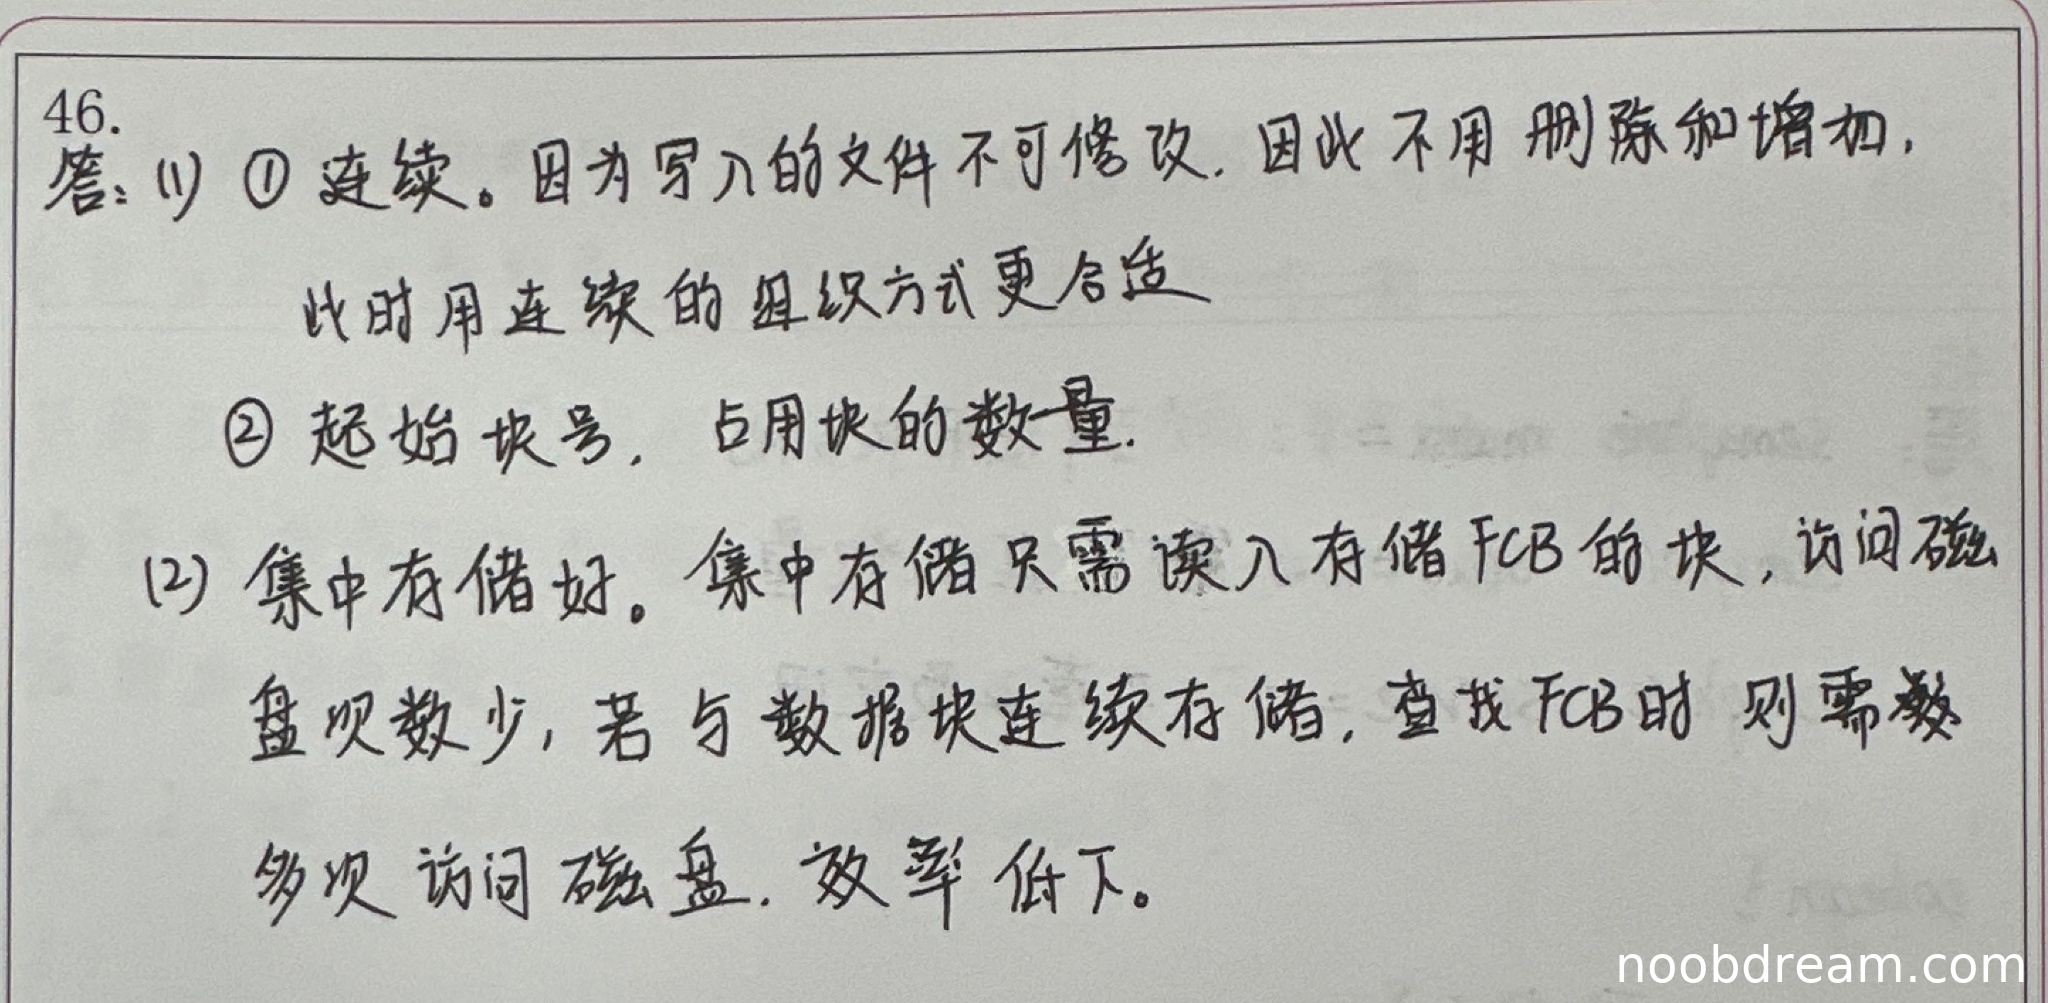 46.
答：(1) ① 连续。因为写入的文件不可修改，因此不用删除和增加，
此时用连续的组织方式更合适
② 起始块号，占用块的数量.
(2) 集中存储好。集中存储只需读入存储FCB的块，访问磁
盘次数少，若与数据块连续存储，查找FCB时则需要
多次访问磁盘，效率低下。
noobdream.com